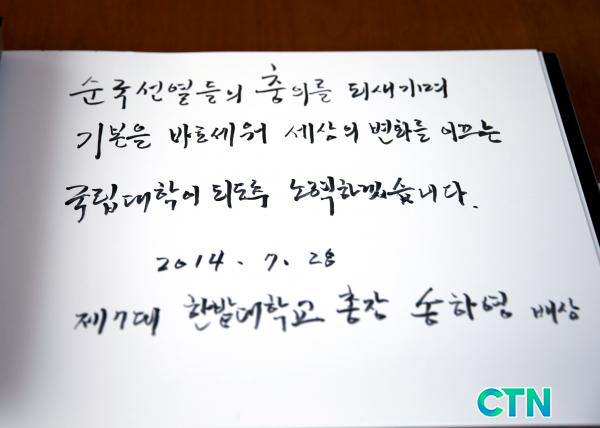 순국선열들의 충의를 되새기며
기본을 바로세워 세상의 변화를 이끄는
국립대학이 되도록 노력하겠습니다.
2014. 7. 28
제7대 한밭대학교 총장 송하영 배상
CTN